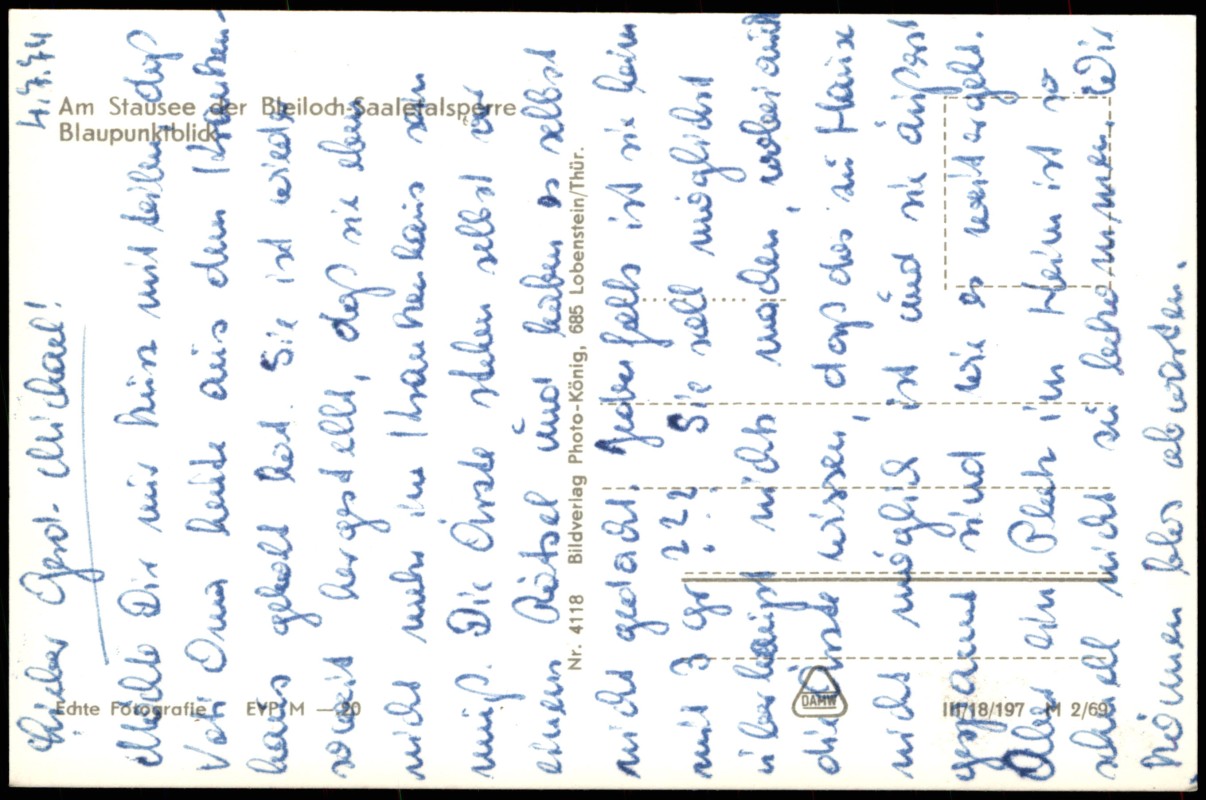 4.7.74
Lieber Gerd-Michael!
Möchte Dir nur kurz mitteilen, daß
Vati Oma heute aus dem Kranken-
haus geholt hat. Sie ist wieder
soweit hergestellt, daß sie eben
nicht mehr im Krankenhaus sein
muß. Die Ärzte stehen selbst vor
einem Rätsel und haben es selbst
nicht gedacht. Jedenfalls ist sie heim
mit 39 ??? Sie soll möglichst
überhaupt nichts machen, wobei auch
die Ärzte wissen, daß das zu Hause
nicht möglich ist und sie äußerst
gespannt sind wie es weitergeht.
Aber ein Platz im Heim ist so
schnell nicht zu bekommen. Wir
können bloß abwarten.
Am Stausee der Bleiloch-Saaletalsperre
Blaupunktblick
Nr. 4118 Bildverlag Photo-König, 685 Lobenstein/Thür.
Echte Fotografie EVP M —.20
DAMW
III/18/197 M 2/69